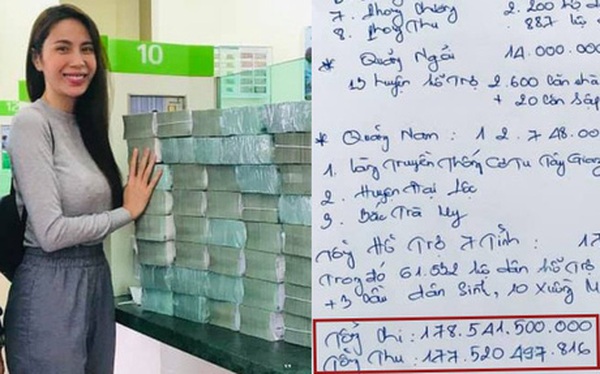 10
7. Phong Chương 2.200 hộ d
8. Phong Thu 887 hộ
* Quảng Ngãi 14.000.000
13 huyện hỗ trợ 2.600 căn nhà
+ 20 căn sập
* Quảng Nam : 12.748.00
1. Làng Truyền Thống Cơ Tu Tây Giang
2. Huyện Đại Lộc
3. Bắc Trà My
Tổng Hỗ Trợ 7 Tỉnh : 17
Trong đó 61.532 hộ dân hỗ trợ
+ 3 cầu dân sinh, 10 xuồng M
Tổng Chi : 178.541.500.000
Tổng Thu : 177.520.497.816